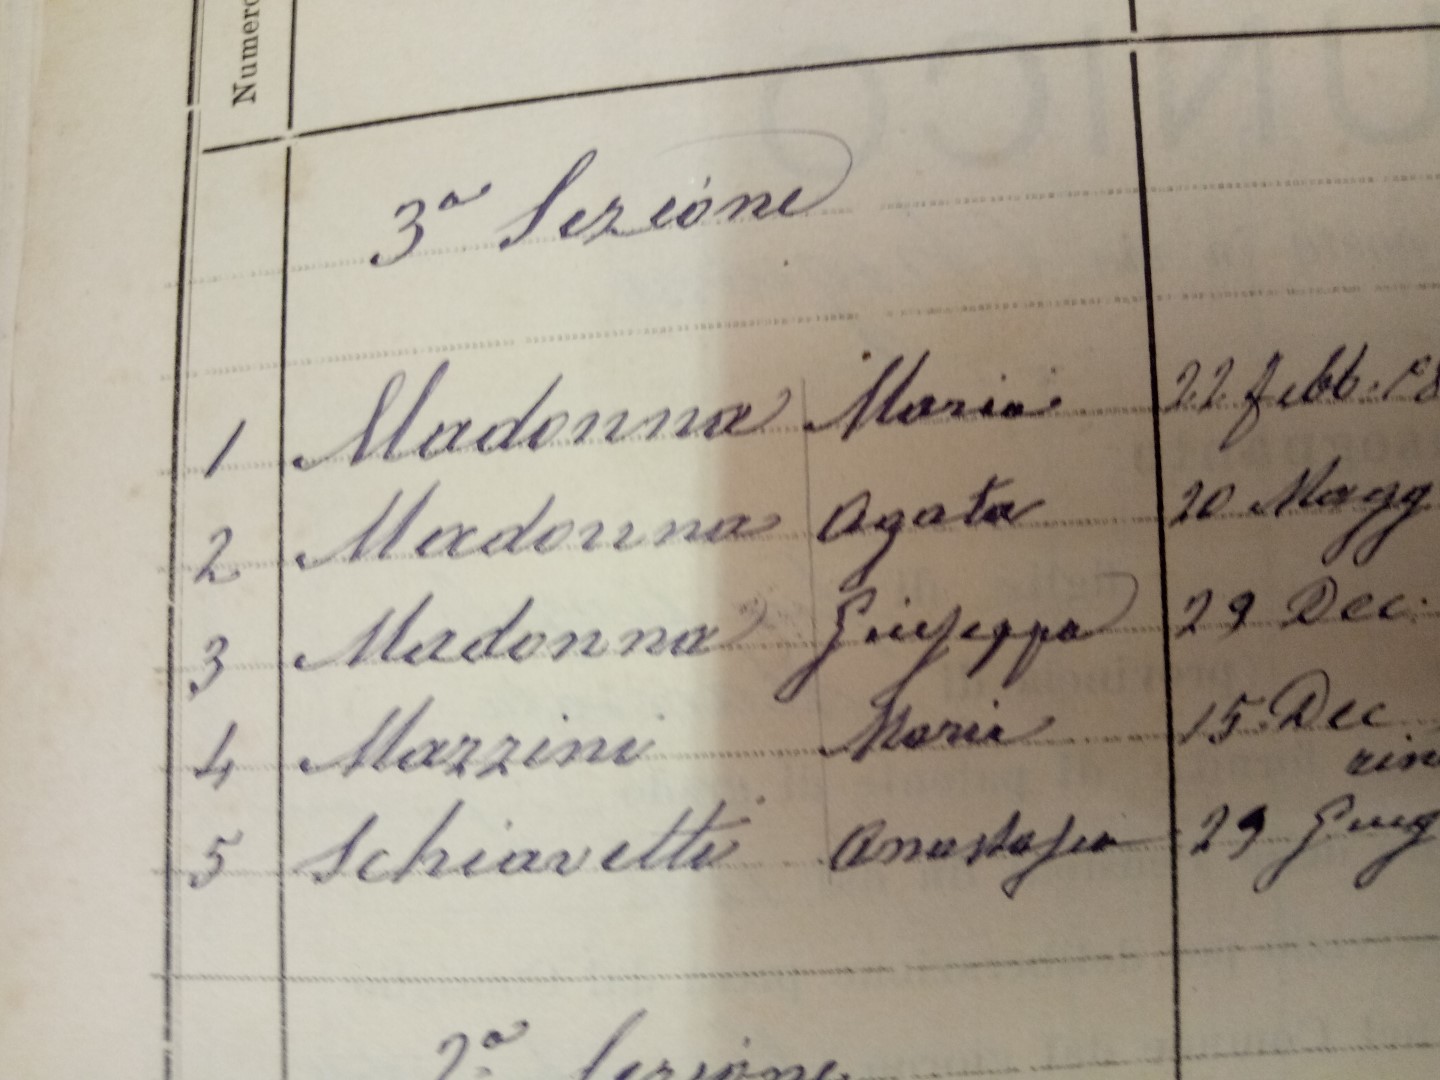 Numero
3ª Sezione
1 Madonna Maria 22 febb. 18
2 Madonna Agata 20 Magg
3 Madonna Giuseppa 29 Dec.
4 Mazzini Maria 15 Dec
5 Schiavetti Anastasia 29 Giug
2ª Sezione